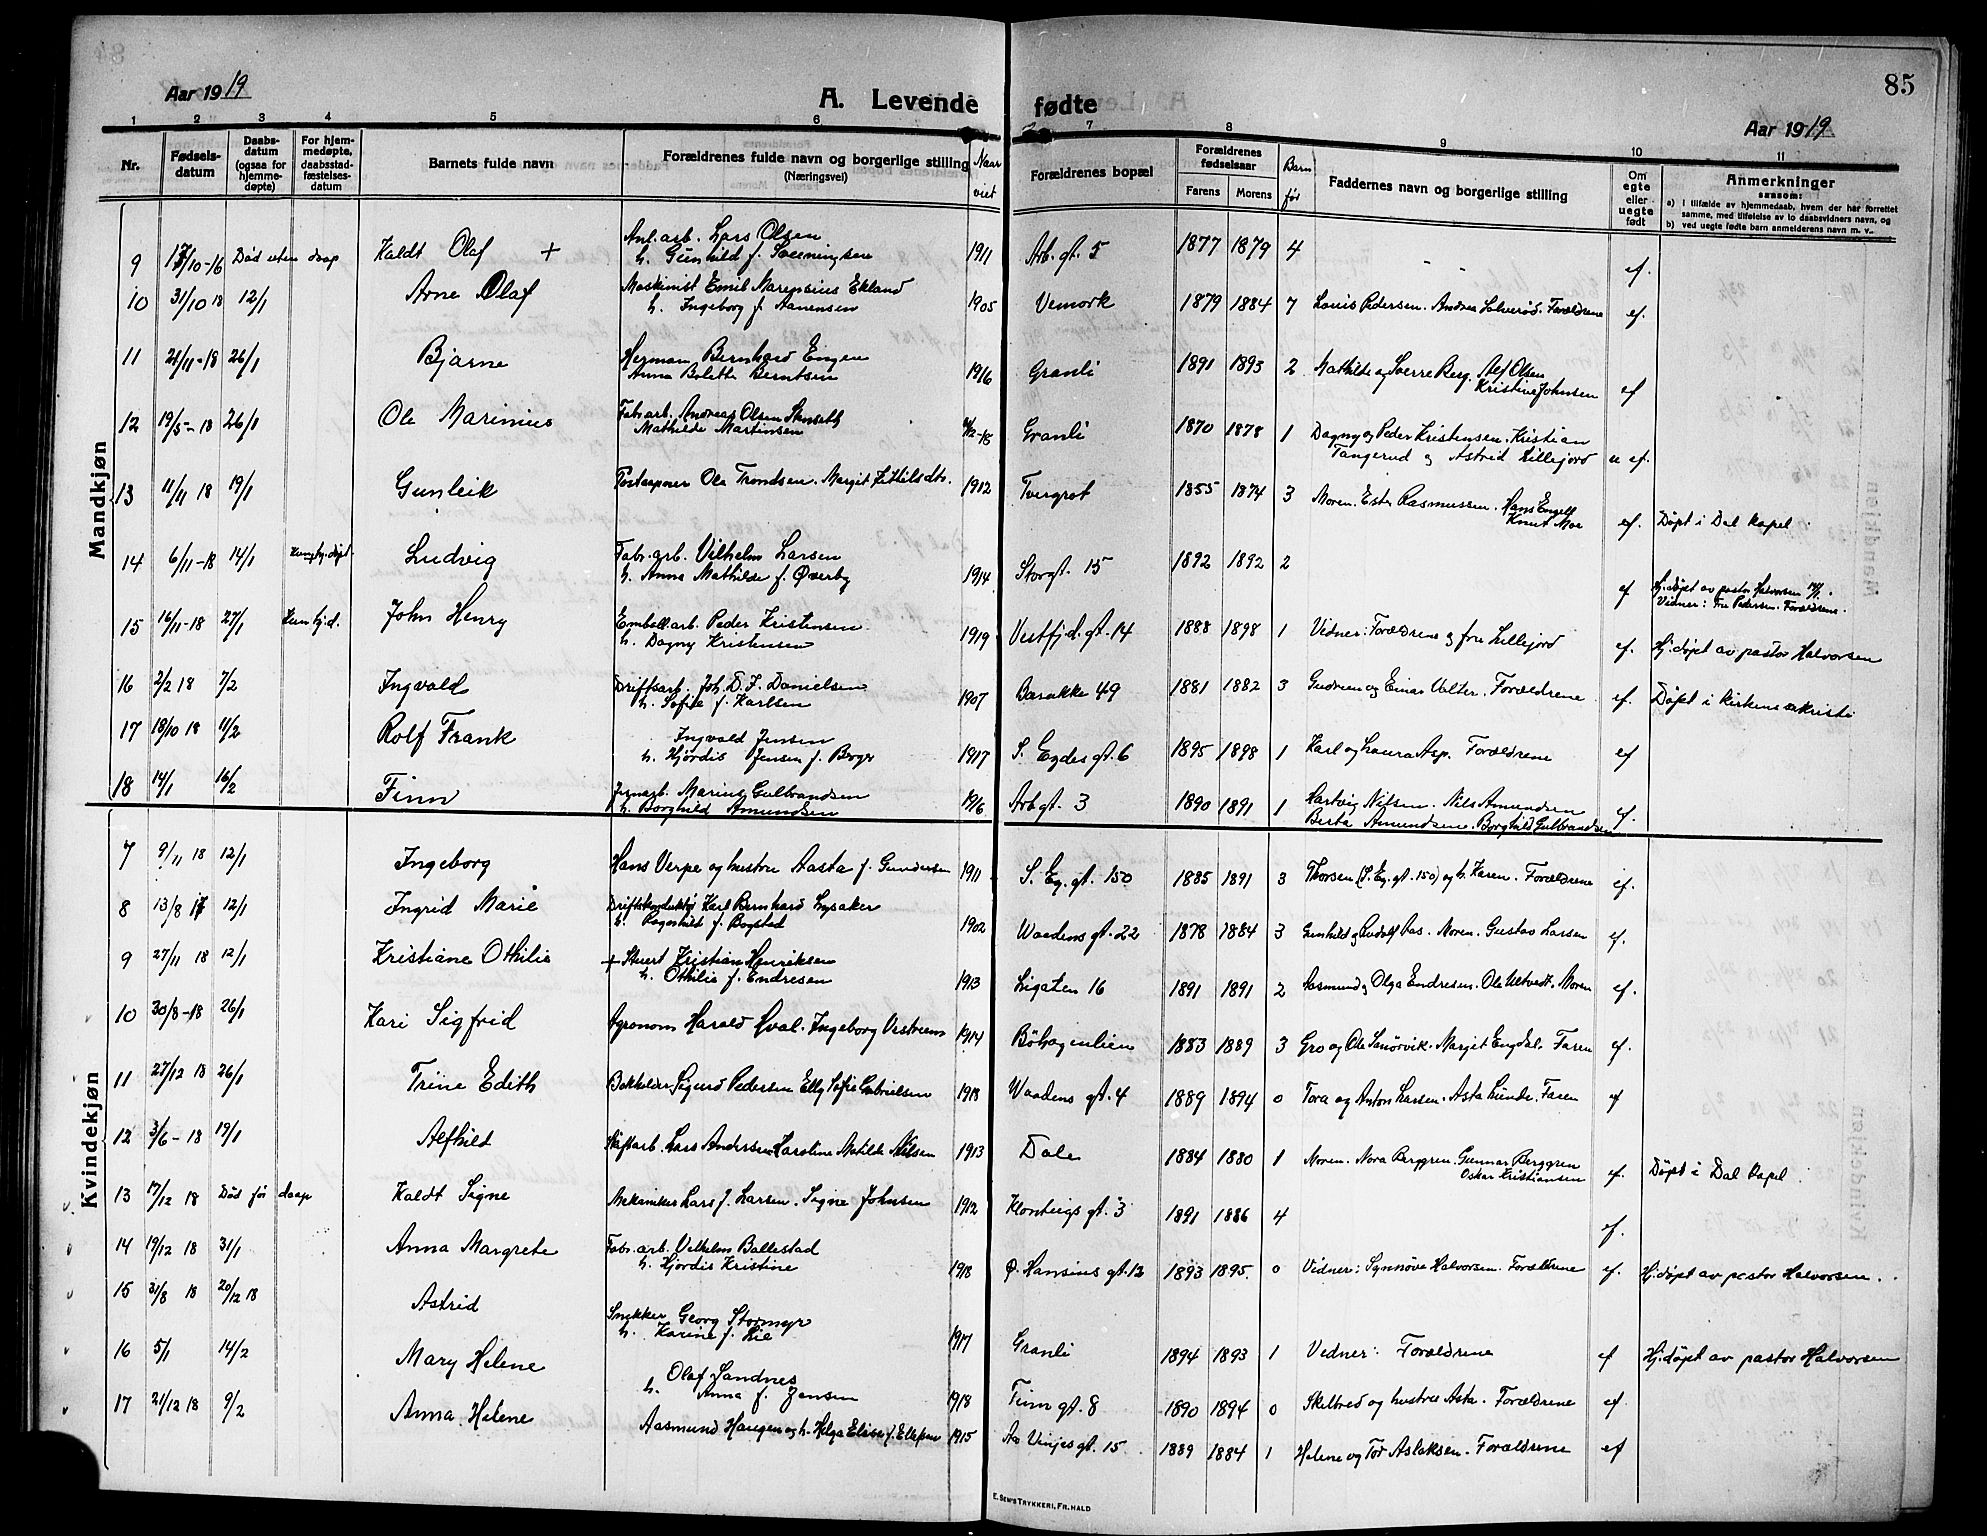 85
Aar 1919
A. Levende fødte
Aar 1919
1 2 3 4 5 6 7 8 9 10 11
Nr.
Fødsels-datum
Daabs-datum (ogsaa for hjemme-døpte)
For hjem-medøpte, daabsstad-fæstelses-datum
Barnets fulde navn
Forældrenes fulde navn og borgerlige stilling (Næringsvei)
Naar viet
Forældrenes bopæl
Forældrenes fødselsaar
Farens Morens
Barn før
Faddernes navn og borgerlige stilling
Om egte eller uegte født
Anmerkninger
saasom:
a) I tilfælde av hjemmedaab, hvem der har forrettet samme, med tilføielse av to daabsvidners navn, og
b) ved uegte fødte barn anmelderens navn m. v.
Mandkjøn
9 17/10-16 Død uten daap Kaldt Olaf + Anl.arb. Lars Olsen 1911 Arb. gt. 5 1877 1879 4 ef.
h. Gunhild f. Sveiningsen
10 31/10 18 12/1 Arne Olaf Maskinist Emil Marensius Ekland 1905 Vemork 1879 1884 7 Louis Pedersen. Andrea Solverød. Forældrene ef.
h. Ingeborg f. Aanensen
11 21/11-18 26/1 Bjarne Herman Bernhard Engen 1916 Granli 1891 1893 2 Mathilde og Sverre Berg. Alf Olsen ef
Anna Bolette Berntsen Kristine Johnsen
12 19/5-18 26/1 Ole Marinius Fabr.arb. Andreas Olsen Stenseth Granli 1870 1878 1 Dagny og Peder Kristensen. Kristian
Mathilde Martinsen Tangerud og Astrid Lillejord u ef.
13 11/11 18 19/1 Gunleik Ole Trondsen. Margit Kittilsdtr. 1912 Tvergrot 1855 1874 3 Moren. Ester Rasmussen. Hans Engell
Knut Moe ef. Døpt i Dal Kapel.
14 6/11-18 14/1 Kun hj. døpt Ludvig Fabr.arb. Vilhelm Larsen 1914 Storgt. 15 1892 1892 2 ef Hj.døpt av pastor Halvorsen
h. Anna Mathilde f. Øverby Vidner: Fru Pedersen. Forældrene.
15 16/11-18 27/1 Kun hj.d. John Henry Emball.arb. Peder Kristensen 1919 Vestfj.d. gt. 14 1888 1898 1 Vidner: Forældrene og fru Lillejord ef. Hj.døpt av pastor Halvorsen
h. Dagny Kristensen
16 2/2 18 7/2 Ingvald Driftsarb. Joh. D. F. Danielsen 1907 Barakke 49 1881 1882 3 Gudrun og Einar Valter. Forældrene ef. Døpt i kirkens sakristi
h. Sofie f. Karlsen
17 18/10 18 11/2 Rolf Frank Ingvald Jensen 1917 S. Eydes gt. 6 1895 1898 1 Karl og Laura Asp. Forældrene ef
h. Hjørdis Jensen f. Borge
18 14/1 16/2 Finn Marius Gulbrandsen 1916 Arb gt. 3 1890 1891 1 Hartvig Nilsen. Nils Amundsen ef.
h. Borghild Amundsen Berta Amundsen. Borghild Gulbrandsen
Kvindekjøn
7 9/11 18 12/1 Ingeborg Hans Verpe og hustru Aasta f. Gundersen 1911 S. Ey. gt. 150 1885 1891 3 Thorsen (S. Ey. gt. 150) og h. Karen. Forældrene ef.
8 13/8 17 12/1 Ingrid Marie Driftskonduktør Karl Bernhard Lysaker 1902 Waadens gt. 22 1878 1884 3 Gunhild og Rudolf Aas. Moren. Gustav Larsen ef.
h. Ragnhild f. Bogstad
9 27/11 18 12/1 Kristiane Othilie + Stuert Kristian Henriksen 1913 Ligaten 16 1891 1891 2 Aasmund og Olga Endresen. Ole Utvedt. Moren ef.
h. Othilie f. Endresen
10 30/8-18 26/1 Kari Sigfrid Agronom Harald Hval. Ingeborg Vestrum 1914 Bøhagenlien 1883 1889 3 Gro og Ole Sanørvik. Margit Engdal. Faren ef.
11 27/12 18 26/1 Trine Edith Bokholder Sigurd Pedersen Elly Sofie Gabrielsen 1918 Waadens gt. 4 1889 1894 0 Tora og Anton Larsen. Asta Lunde. Faren ef
12 3/6-18 19/1 Alfhild Skiftarb. Lars Andersen Karoline Matilde Nilsen 1913 Dale 1884 1880 1 Moren. Nora Berggren. Gunnar Berggren
Oskar Kristiansen ef. Døpt i Dal Kapel.
13 17/12 18 Død før daap Kaldt Signe Mekaniker Lars J. Larsen. Signe Johnsen 1912 Kloumannsgt. 3 1891 1886 4 ef.
14 19/12 18 31/1 Anna Margrete Fabr.arb. Vilhelm Ballestad 1918 P. Hansens gt. 12 1893 1895 0 Vidner: Synnøve Halvorsen. Forældrene ef. Hj.døpt av pastor Halvorsen.
h. Hjørdis Kristine
15 31/8 18 20/12 18 Astrid Snekker Georg Stormyr 1917 Granli 1894 1893 1 Vidner: Forældrene ef Hj.døpt av pastor Halvorsen
h. Karine f. Lie
16 5/1 14/2 Mary Helene Olaf Sandnes 1918 Finn gt. 8 1890 1894 0 Skeltved og hustru Asta. Forældrene ef.
h. Anna f. Jensen
17 21/12 18 9/2 Anna Helene Aasmund Haugen og h. Helga Elise f. Ellefsen 1915 Aa Vinjes gt. 15 1889 1884 1 Helene og Tor Aslaksen. Forældrene ef
E. SEM'S TRYKKERI, FR.HALD